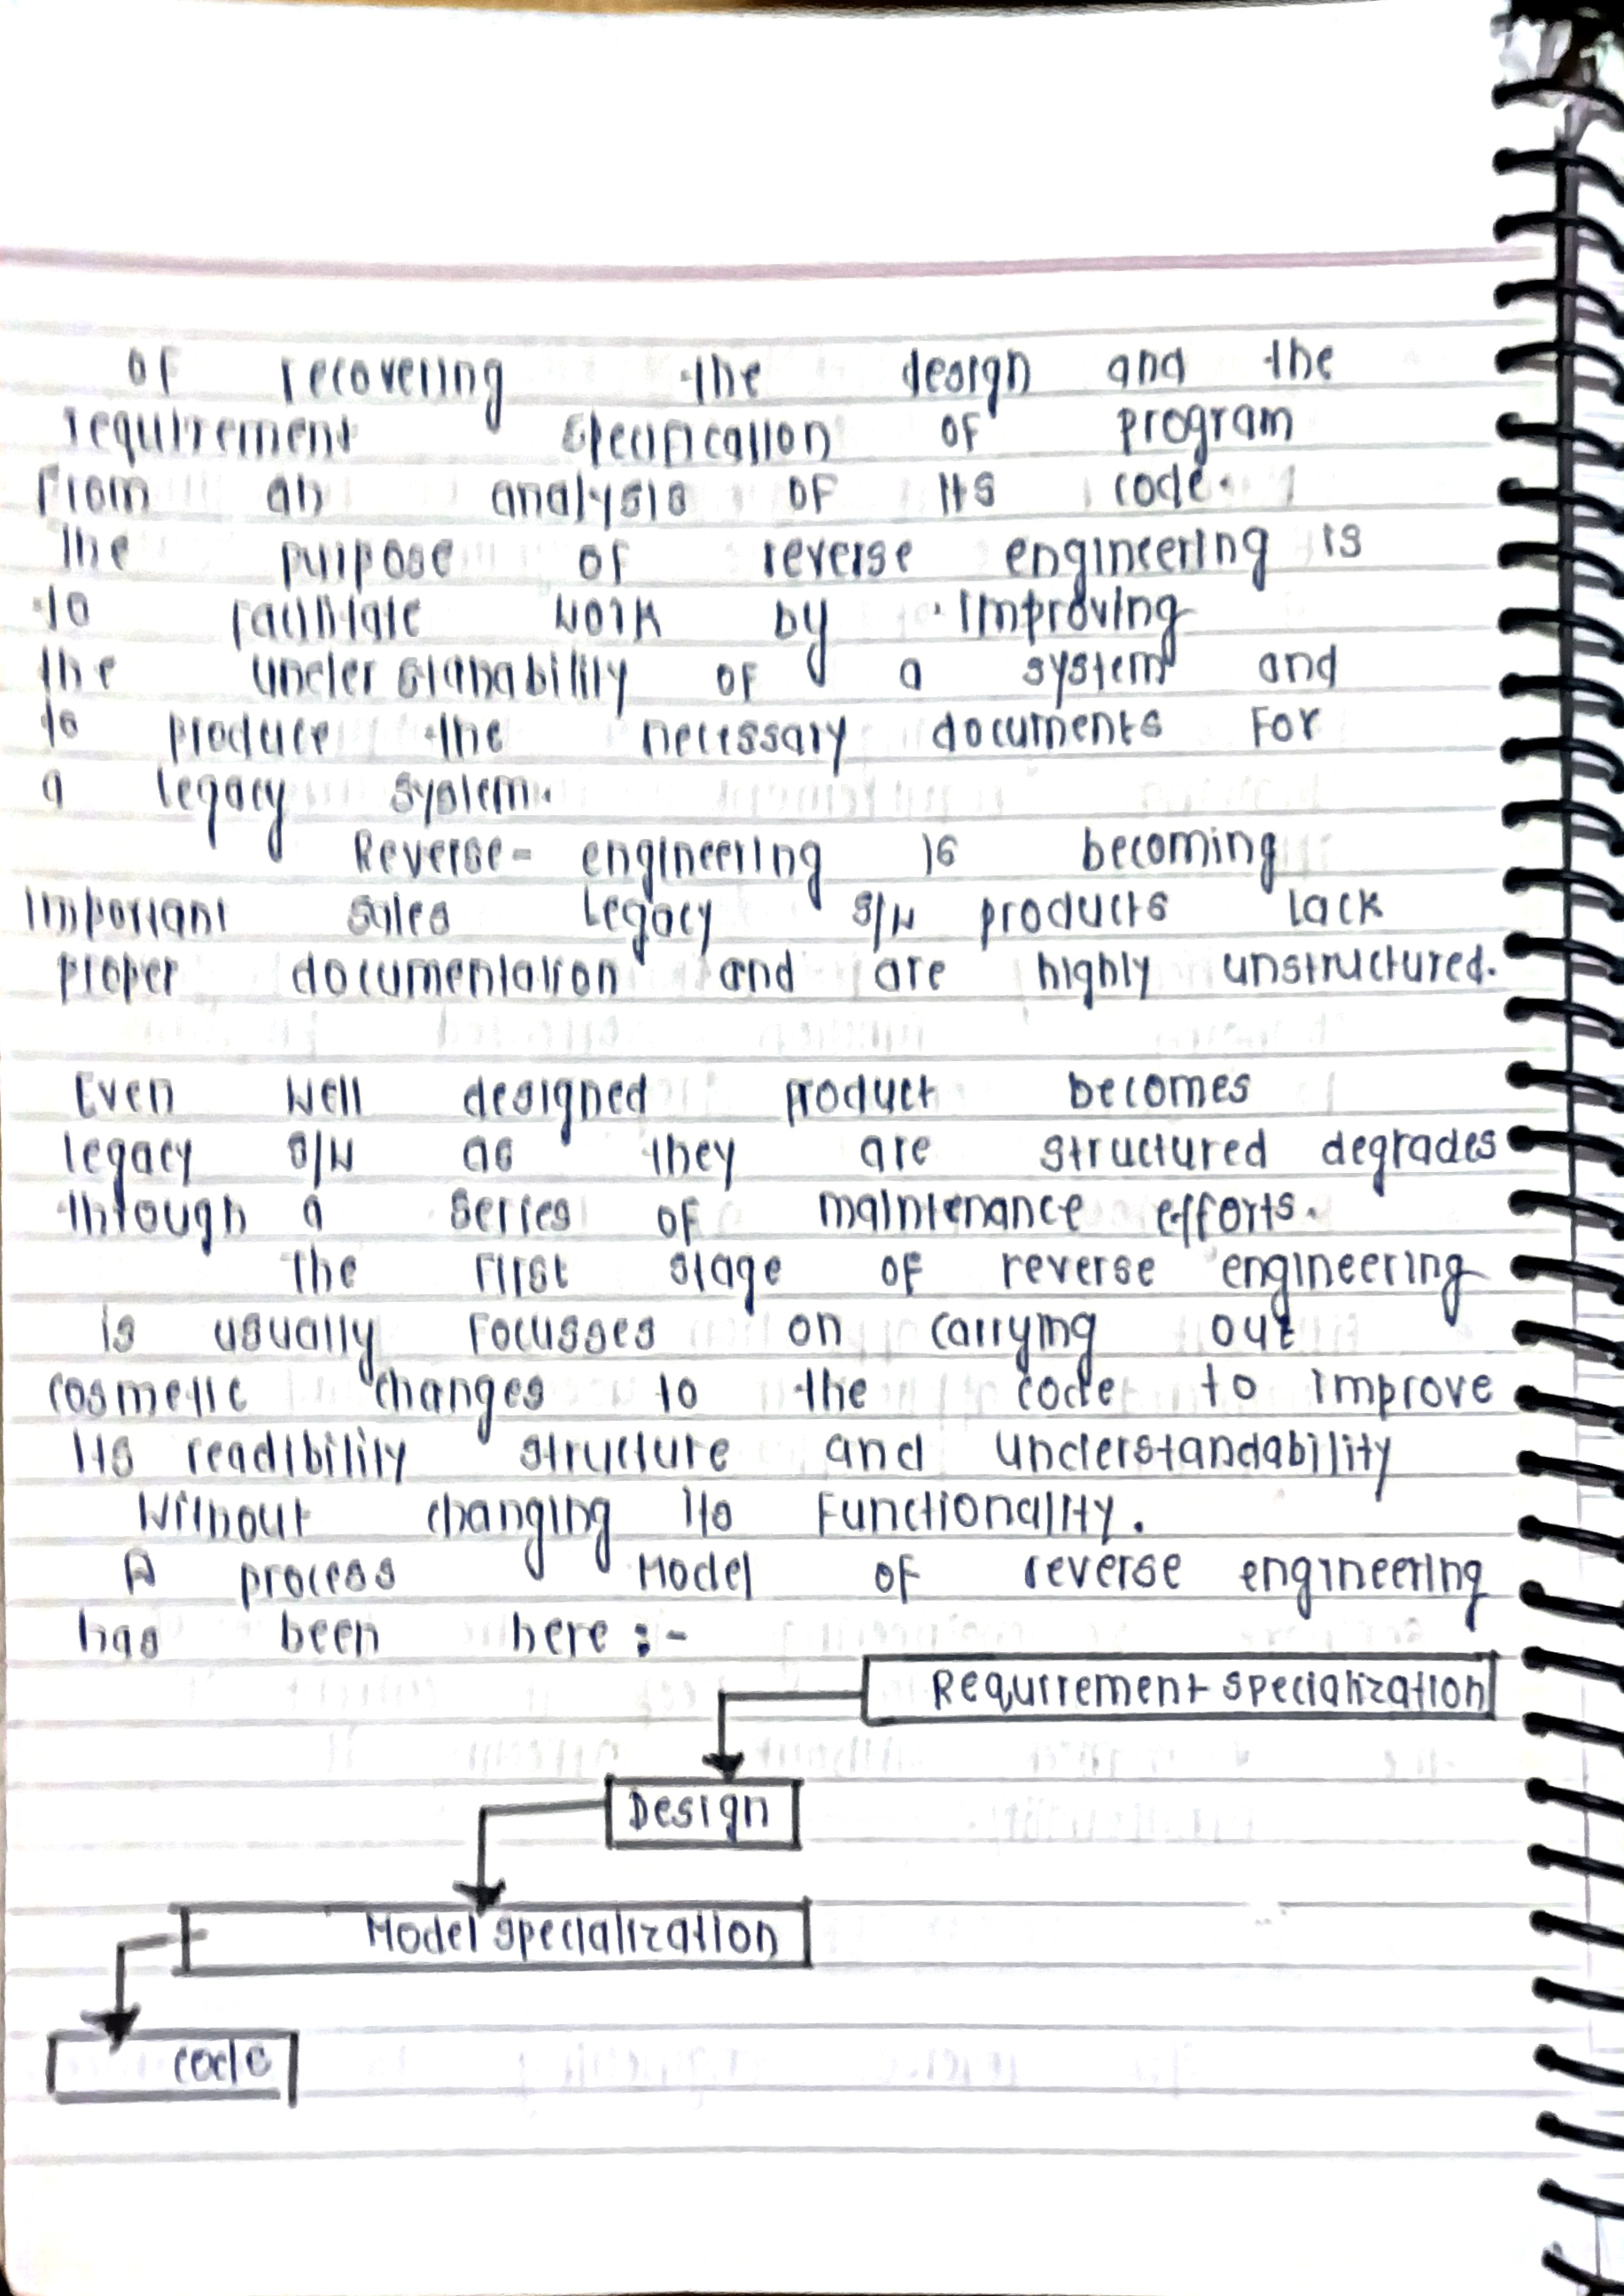 of recovering the design and the
requirement specification of program
From an analysis of its code.
The purpose of reverse engineering is
to facilitate work by improving
the understanability of a system and
to produce the necessary documents For
a legacy system.
Reverse- engineering is becoming
important sales Legacy S/W products Lack
proper documentation and are highly unstructured.
Even well designed product becomes
legacy S/W as they are structured degrades
through a series of maintenance efforts.
The First stage of reverse engineering
is usually Focusses on carrying out
cosmetic changes to the code to improve
its readibility structure and understandability
Without changing its Functionality.
A process Model of reverse engineering
has been here :-
Requirement specialization
Design
Model specialization
code